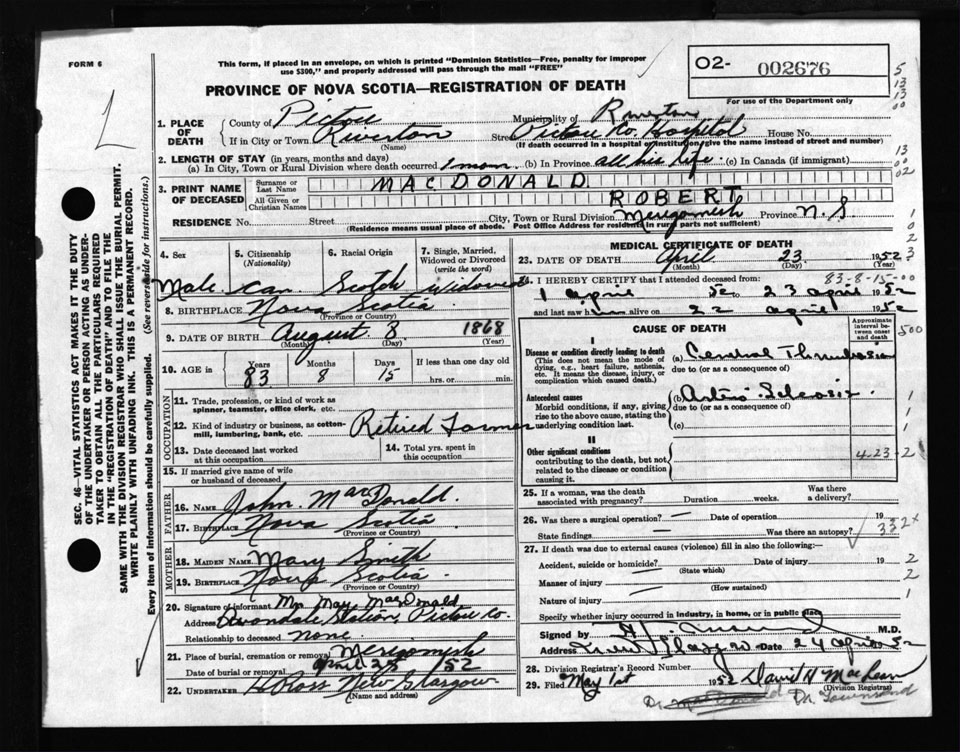 FORM 6
This form, if placed in an envelope, on which is printed "Dominion Statistics—Free, penalty for improper
use $300," and properly addressed will pass through the mail "FREE"
O2- 002676
For use of the Department only
PROVINCE OF NOVA SCOTIA—REGISTRATION OF DEATH
1. PLACE OF DEATH
County of Pictou Municipality of Riverton
If in City or Town Riverton Street Pictou Co. Hospital House No.
(Name) (If death occurred in a hospital or institution, give the name instead of street and number)
2. LENGTH OF STAY (in years, months and days)
(a) In City, Town or Rural Division where death occurred 1 mon. (b) In Province all his life. (c) In Canada (if immigrant)
3. PRINT NAME OF DECEASED
Surname or Last Name MACDONALD
All Given or Christian Names ROBERT
RESIDENCE No. Street City, Town or Rural Division Merigomish Province N.S.
(Residence means usual place of abode. Post Office Address for residents in rural parts not sufficient)
4. Sex 5. Citizenship (Nationality) 6. Racial Origin 7. Single, Married, Widowed or Divorced (write the word)
Male Can Scotch Widowed
8. BIRTHPLACE Nova Scotia
(Province or Country)
9. DATE OF BIRTH August 8 1868
(Month) (Day) (Year)
10. AGE in Years 83 Months 8 Days 15 If less than one day old
hrs. or min.
OCCUPATION
11. Trade, profession, or kind of work as
spinner, teamster, office clerk, etc.
12. Kind of industry or business, as cotton-
mill, lumbering, bank, etc. Retired Farmer
13. Date deceased last worked
at this occupation
14. Total yrs. spent in
this occupation
15. If married give name of wife
or husband of deceased
FATHER
16. NAME John MacDonald.
17. BIRTHPLACE Nova Scotia
(Province or Country)
MOTHER
18. MAIDEN NAME Mary Smith
19. BIRTHPLACE Nova Scotia.
(Province or Country)
20. Signature of informant May MacDonald
Address Avondale Station, Pictou Co.
Relationship to deceased None.
21. Place of burial, cremation or removal Merigomish
Date of burial or removal April 52
22. UNDERTAKER H Ross New Glasgow
(Name and address)
MEDICAL CERTIFICATE OF DEATH
23. DATE OF DEATH April 23 1952
(Month) (Day) (Year)
83-8-15-00
24. I HEREBY CERTIFY that I attended deceased from:
1 April 52 to 23 April 1952
and last saw him alive on 22 April 1952
CAUSE OF DEATH
Approximate interval between onset and death
I
Disease or condition directly leading to death
(This does not mean the mode of
dying, e.g., heart failure, asthenia,
etc. It means the disease, injury, or
complication which caused death.)
(a) Cerebral Thrombosis
due to (or as a consequence of)
Antecedent causes
Morbid conditions, if any, giving
rise to the above cause, stating the
underlying condition last.
(b) Arterio Sclerosis
due to (or as a consequence of)
(c)
II
Other significant conditions
contributing to the death, but not
related to the disease or condition
causing it.
423-2
25. If a woman, was the death
associated with pregnancy? Duration weeks. Was there
a delivery?
26. Was there a surgical operation? — Date of operation 19
State findings Was there an autopsy?
332x
27. If death was due to external causes (violence) fill in also the following:—
Accident, suicide or homicide? Date of injury 19
(State which)
Manner of injury
(How sustained)
Nature of injury
Specify whether injury occurred in industry, in home, or in public place
Signed by M.D.
Address New Glasgow Date 24 April 52
28. Division Registrar's Record Number
29. Filed May 1st 1952 David H MacLean
(Division Registrar)
Dr. Dr. Townsend
SEC. 46—VITAL STATISTICS ACT MAKES IT THE DUTY
OF THE UNDERTAKER OR PERSON ACTING AS UNDER-
TAKER TO OBTAIN ALL THE PARTICULARS REQUIRED
IN THE "REGISTRATION OF DEATH" AND TO FILE THE
SAME WITH THE DIVISION REGISTRAR WHO SHALL ISSUE THE BURIAL PERMIT.
WRITE PLAINLY WITH UNFADING INK. THIS IS A PERMANENT RECORD.
Every item of information should be carefully supplied. (See reverse side for instructions.)